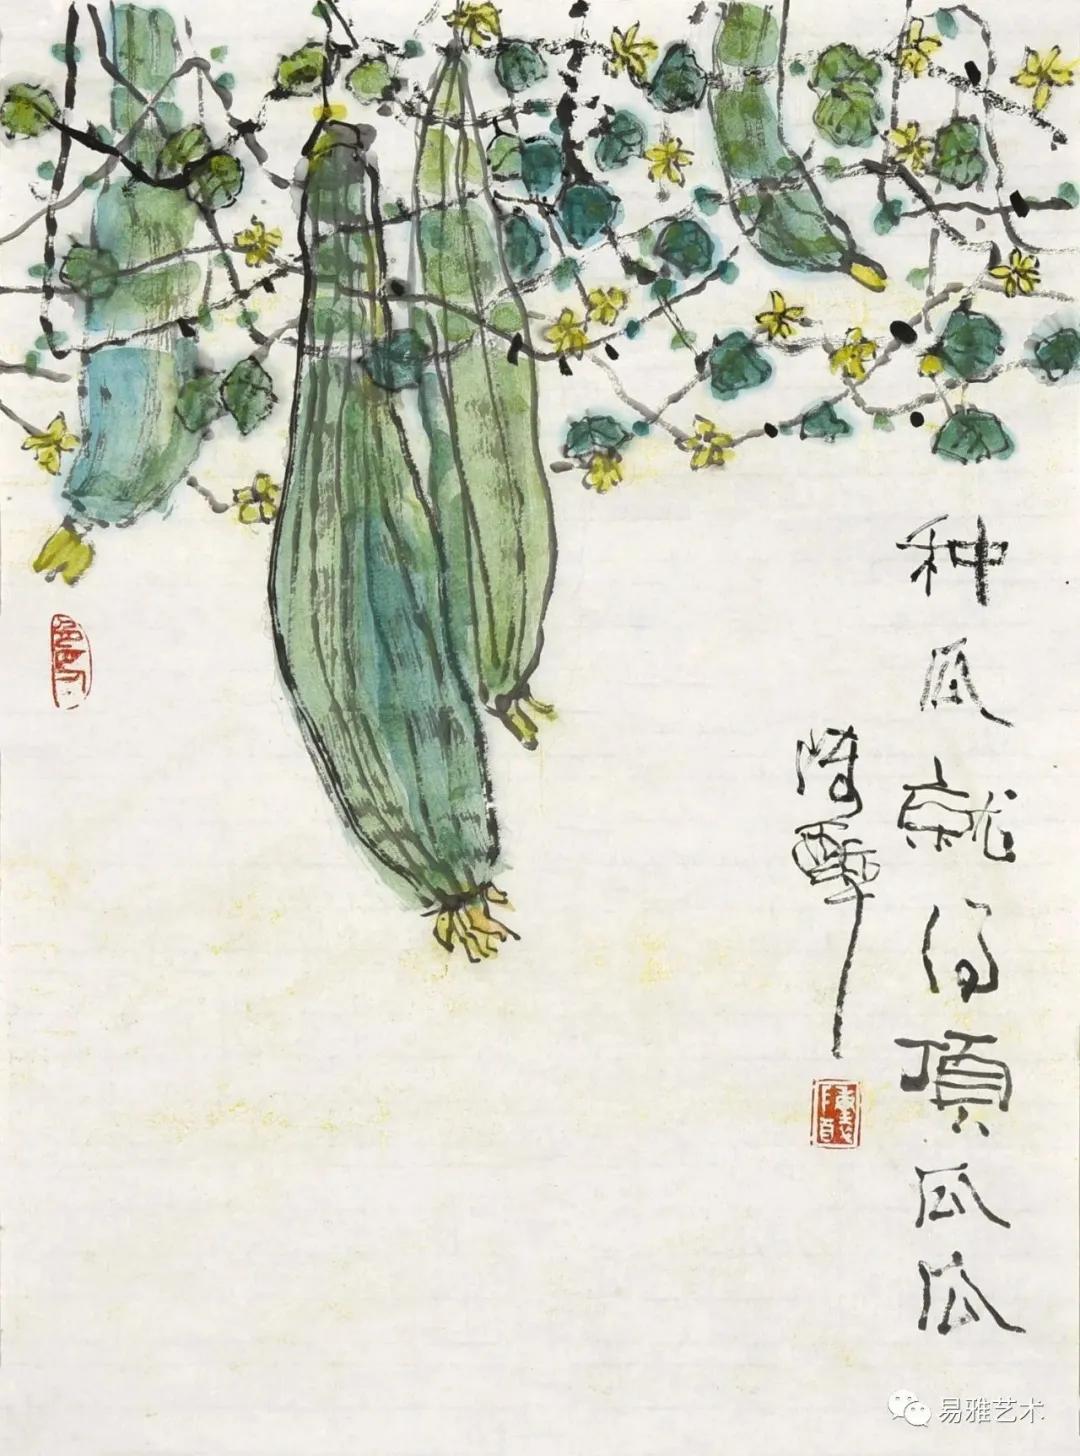 种瓜就得頂瓜瓜
陈醉
易雅艺术